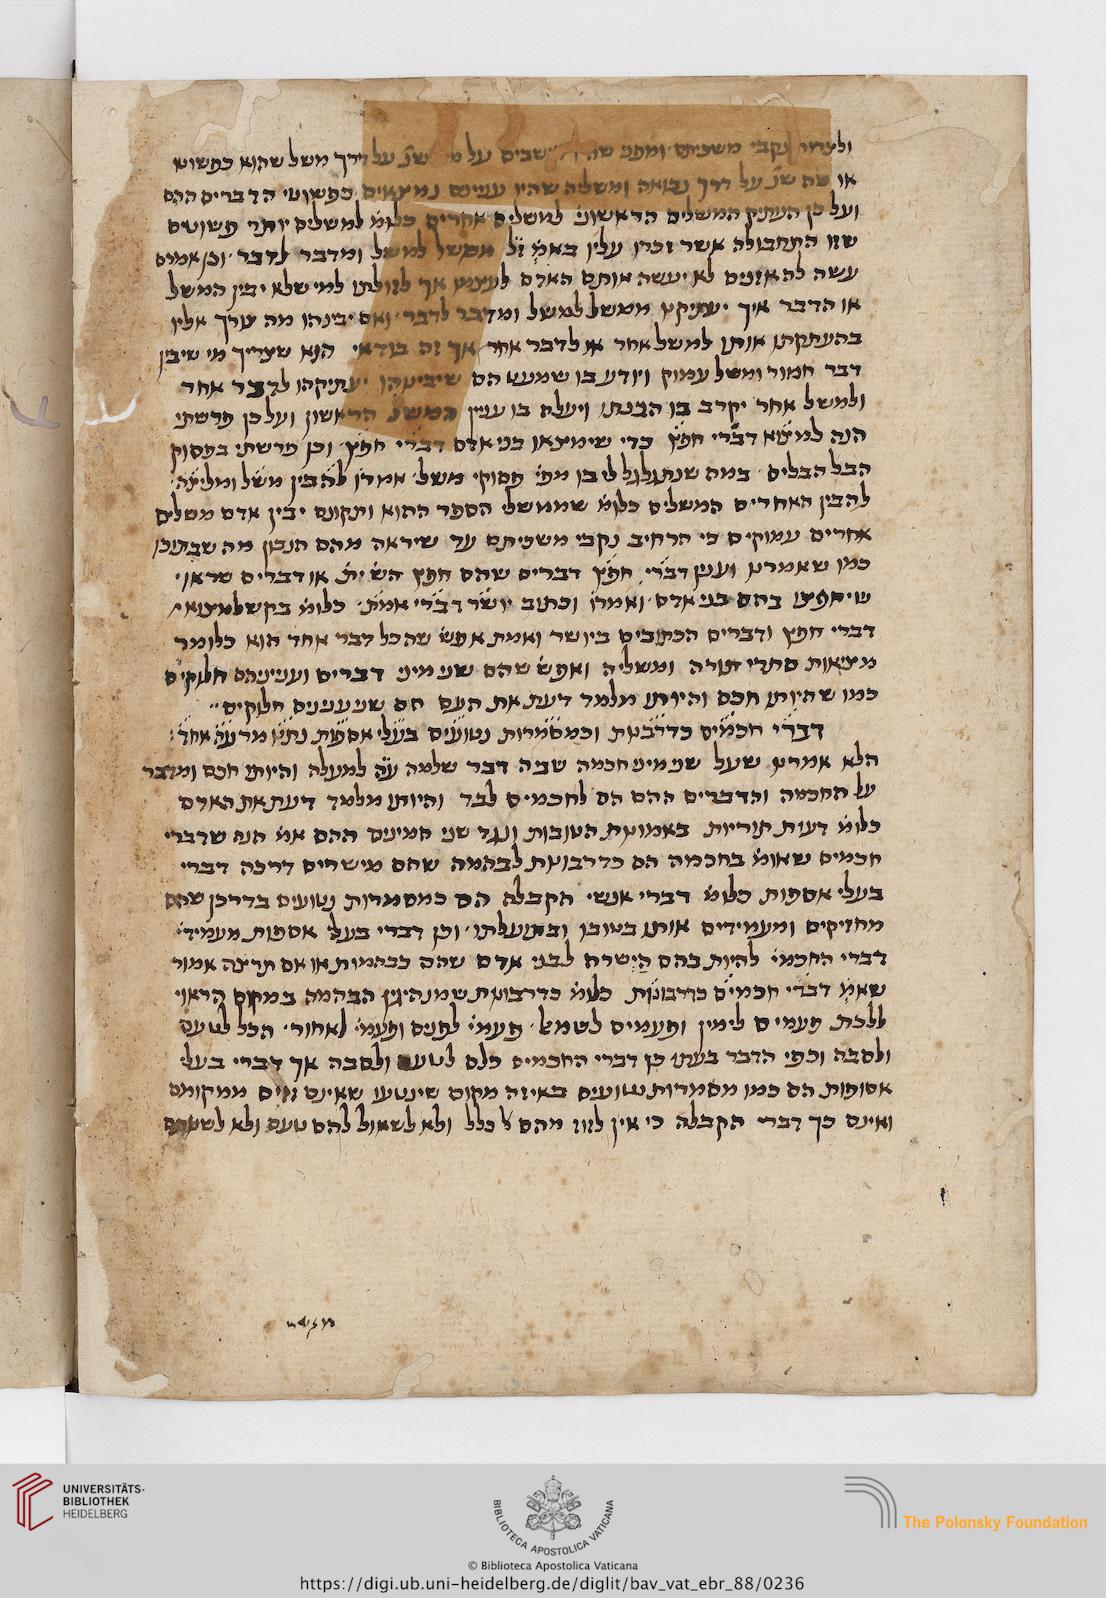 נקבי משכיתם ומפני על דרך משל שהוא כפשוטו
או על דרך נבואה ומשליה שהיו עניינם נמצאים כפשוטי הדברים ההם
ועל כן העתיק המשלים הראשוני׳ למשלים אחרים כלומ׳ למשלים יותר פשוטים
שזו התחבולה אשר זכרו עליו באמ׳ ז״ל ממשל למשל ומדבר לדבר וכן אמרם
עשה לה אזנים לא יעשה אותם האדם לעצמו אך לזולתו למי שלא יבין המשל
או הדבר איך יעתיקהו ממשל למשל ומדבר לדבר ואם יבינהו מה צורך אליו
בהעתקתו אותו למשל אחר או לדבר אחר אך זה בודאי הוא שצריך מי שיבין
דבר חמור ומשל עמוק ויודע בו שמעט הם שיבינוהו יעתיקהו לדבר אחד
ולמשל אחר יקרב בו הבנתו ויעלה בו עניין המשל הראשון ועל כן פרשתי
הנה למצוא דברי חפץ כדי שימצאו בני אדם דברי חפץ וכן פרשתי בפסוק
הבל הבלים במה שנתגלגל לי בו מפי׳ פסוקי משל אמרו להבין משל ומליצה
להבין האחרים המשלים כלומ׳ שממשלי הספר ההוא ותקונם יבין אדם משלים
אחרים עמוקים כי הרחיב נקבי משכיתם עד שיראה מהם הנבון מה שבתוכן
כמו שאמרנו וענין דברי חפץ דברים שהם חפץ השי״ת או דברים שראוי
שיחפצו בהם בני אדם ואמרו וכתוב יושר דברי אמת כלומ׳ בקש למצוא
דברי חפץ ודברים הכתובים ביושר ואמת אפש׳ שהכל דבר אחד הוא כלומר
מציאות סתרי תורה ומשליה ואפש׳ שהם שני מיני דברים ועניניהם חלוקים
כמו שהיותו חכם והיותו מלמד דעת את העם הם שני ענינים חלוקים
דברי חכמים כדרבנות וכמסמרות נטועים בעלי אסופות נתנו מרעה אחד
הלא אמרנו שעל שני מיני חכמה שבה דבר שלמה ע״ה למעלה והיותו חכם ומדבר
על החכמה והדברים ההם הם לחכמים לבד והיותו מלמד דעת את האדם
כלומ׳ דעות תוריות באמונות הטובות ונגד שני המינים ההם אמ׳ הנה שדברי
חכמים שאומ׳ בחכמה הם כדרבונות לבהמה שהם מישרים דרכה דברי
בעלי אסופות כלומ׳ דברי אנשי הקבלה הם כמסמרות נטועים בדרכן שהם
מחזיקים ומעמידים אותו בטובו ובתועלתו וכן דברי בעלי אסופות מעמידי׳
דברי החכמי׳ להיות בהם היישרה לבני אדם שהם כבהמות או אם תרצה אמור
שאמ׳ דברי חכמים כדרבונות כלומ׳ כדרבונות שמנהיגין הבהמה במקום הראוי
ללכת פעמים לימין ופעמים לשמאל פעמי׳ לפנים ופעמי׳ לאחור הכל לטעם
ולסבה וכפי הדבר בעתו כן דברי החכמים כלם לטעם ולסבה אך דברי בעלי
אסופות הם כמו מסמרות נטועים באיזה מקום שינטעו שאינם זזים ממקומם
ואינם כך דברי הקבלה כי אין לזוז מהם כלל ולא לשאול להם טעם ולא לשנותם
UNIVERSITÄTS-
BIBLIOTHEK
HEIDELBERG
BIBLIOTECA APOSTOLICA VATICANA
The Polonsky Foundation
© Biblioteca Apostolica Vaticana
https://digi.ub.uni-heidelberg.de/diglit/bav_vat_ebr_88/0236